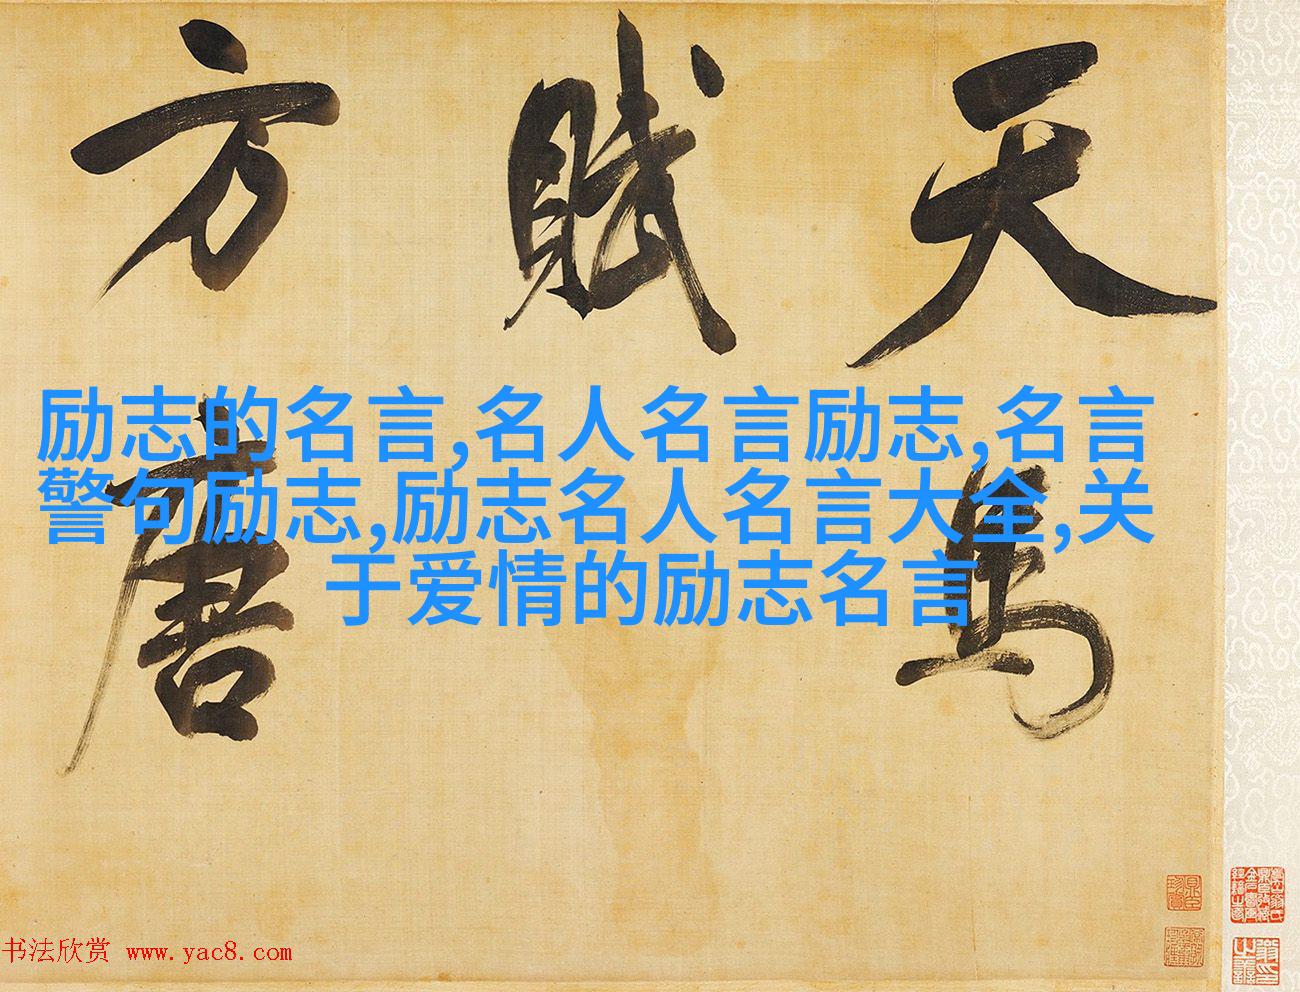 天馬
賦
方唐
励志的名言,名人名言励志,名言
警句励志,励志名人名言大全,关
于爱情的励志名言
书法欣赏 www.yac8.com